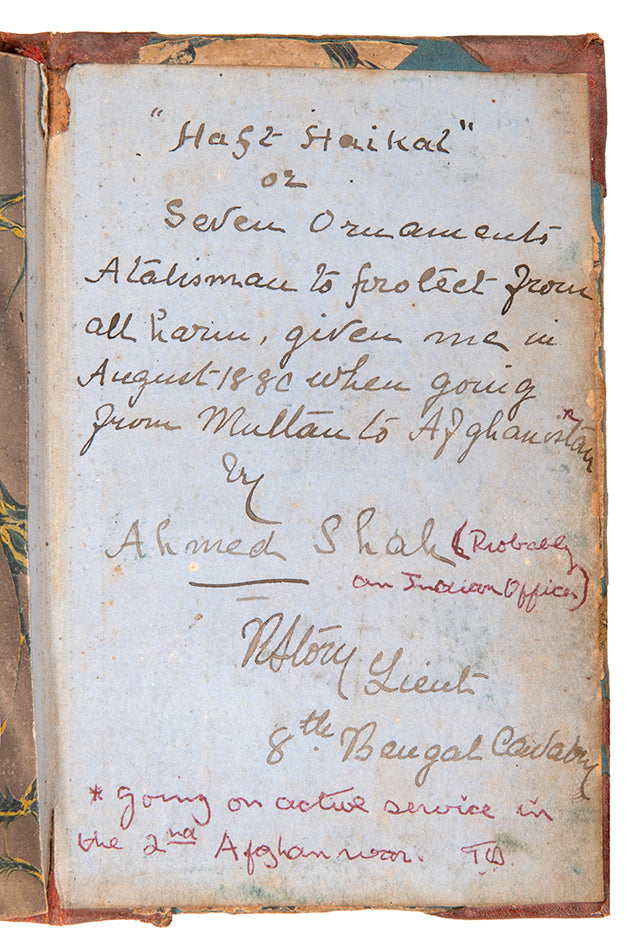 "Haft Haikal"
or
Seven Ornaments
A talisman to protect from
all harm, given me in
August 1880 when going
from Multan to Afghanistan *
by
Ahmed Shah (Probably
an Indian Officer)
Lieut
8th Bengal Cavalry
* going on active service in
the 2nd Afghan war.